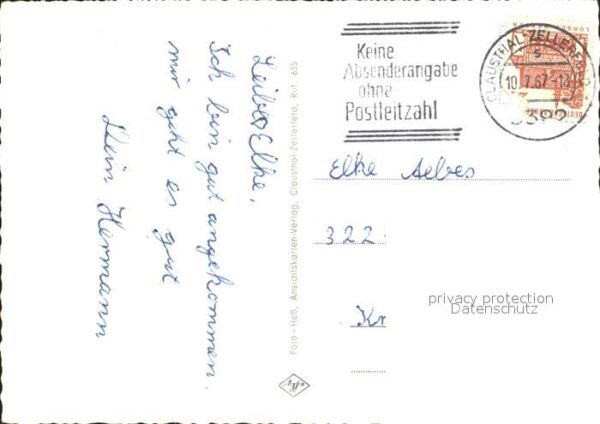 Leibe Elke,
Ich bin gut angekommen.
mir geht es gut
Dein Hermann
Foto - Heß, Ansichtskarten-Verlag, Clausthal-Zellerfeld, Ruf. 635
Keine
Absenderangabe
ohne
Postleitzahl
CLAUSTHAL-ZELLERFELD
10.7.67-18
3392
Elke Aelves
322
Kr
privacy protection
Datenschutz